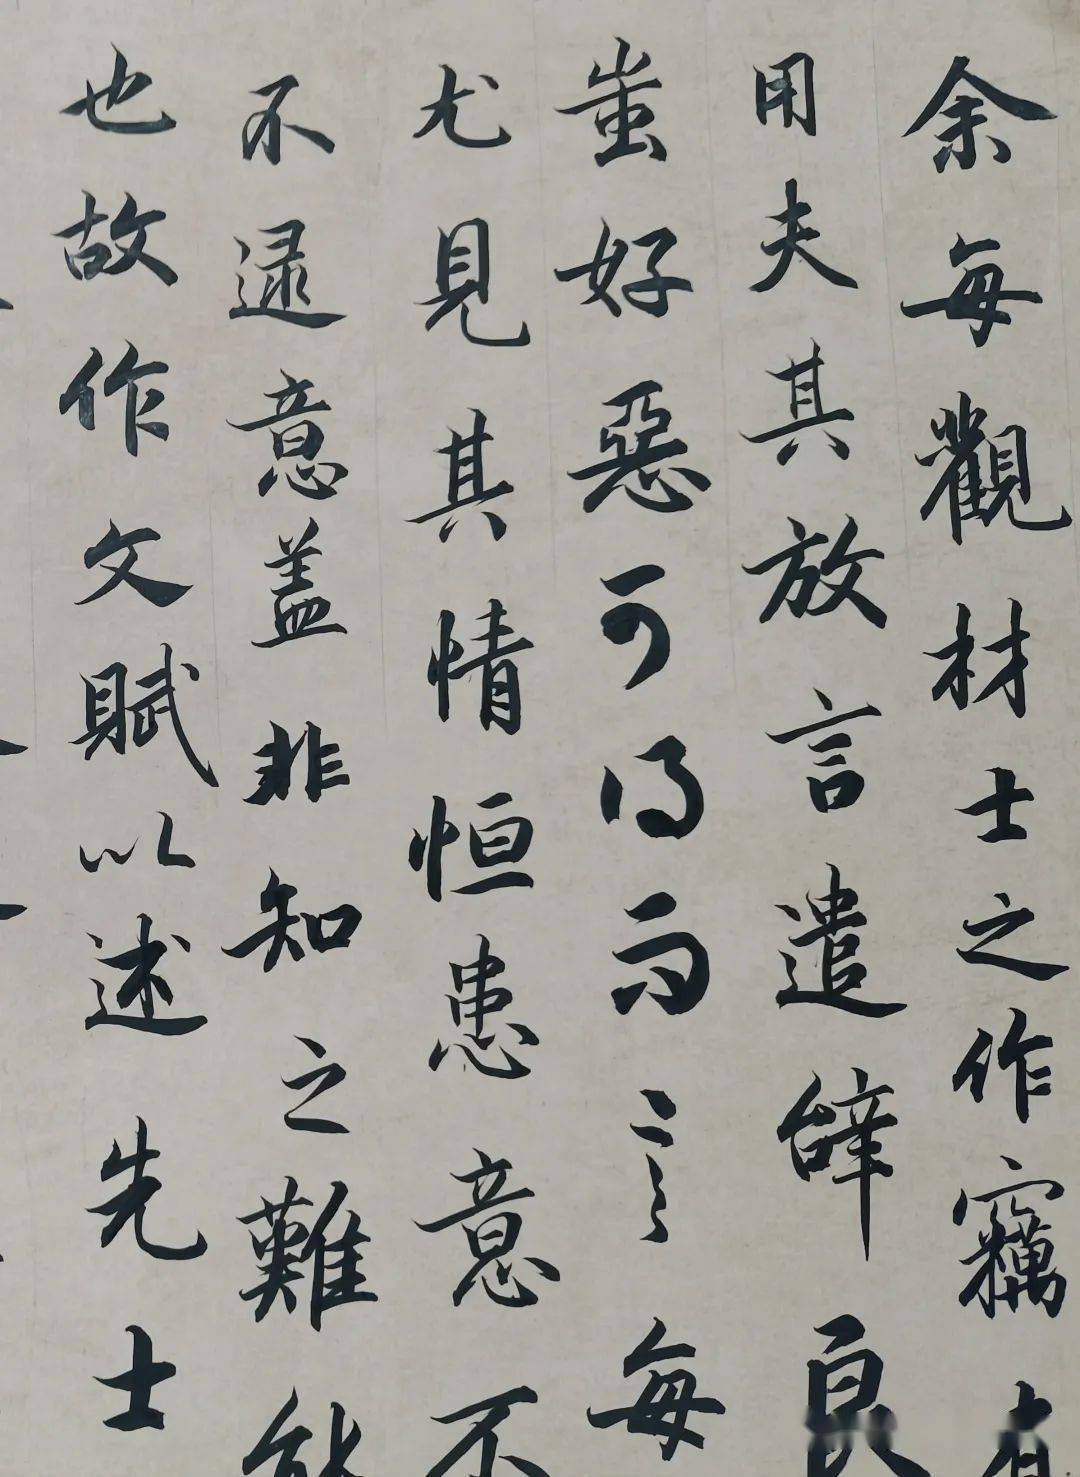 余每觀材士之作竊有
用夫其放言遣辝良
蚩好惡可得而言每
尤見其情恒患意不
不逮意盖非知之難能
也故作文賦以述先士